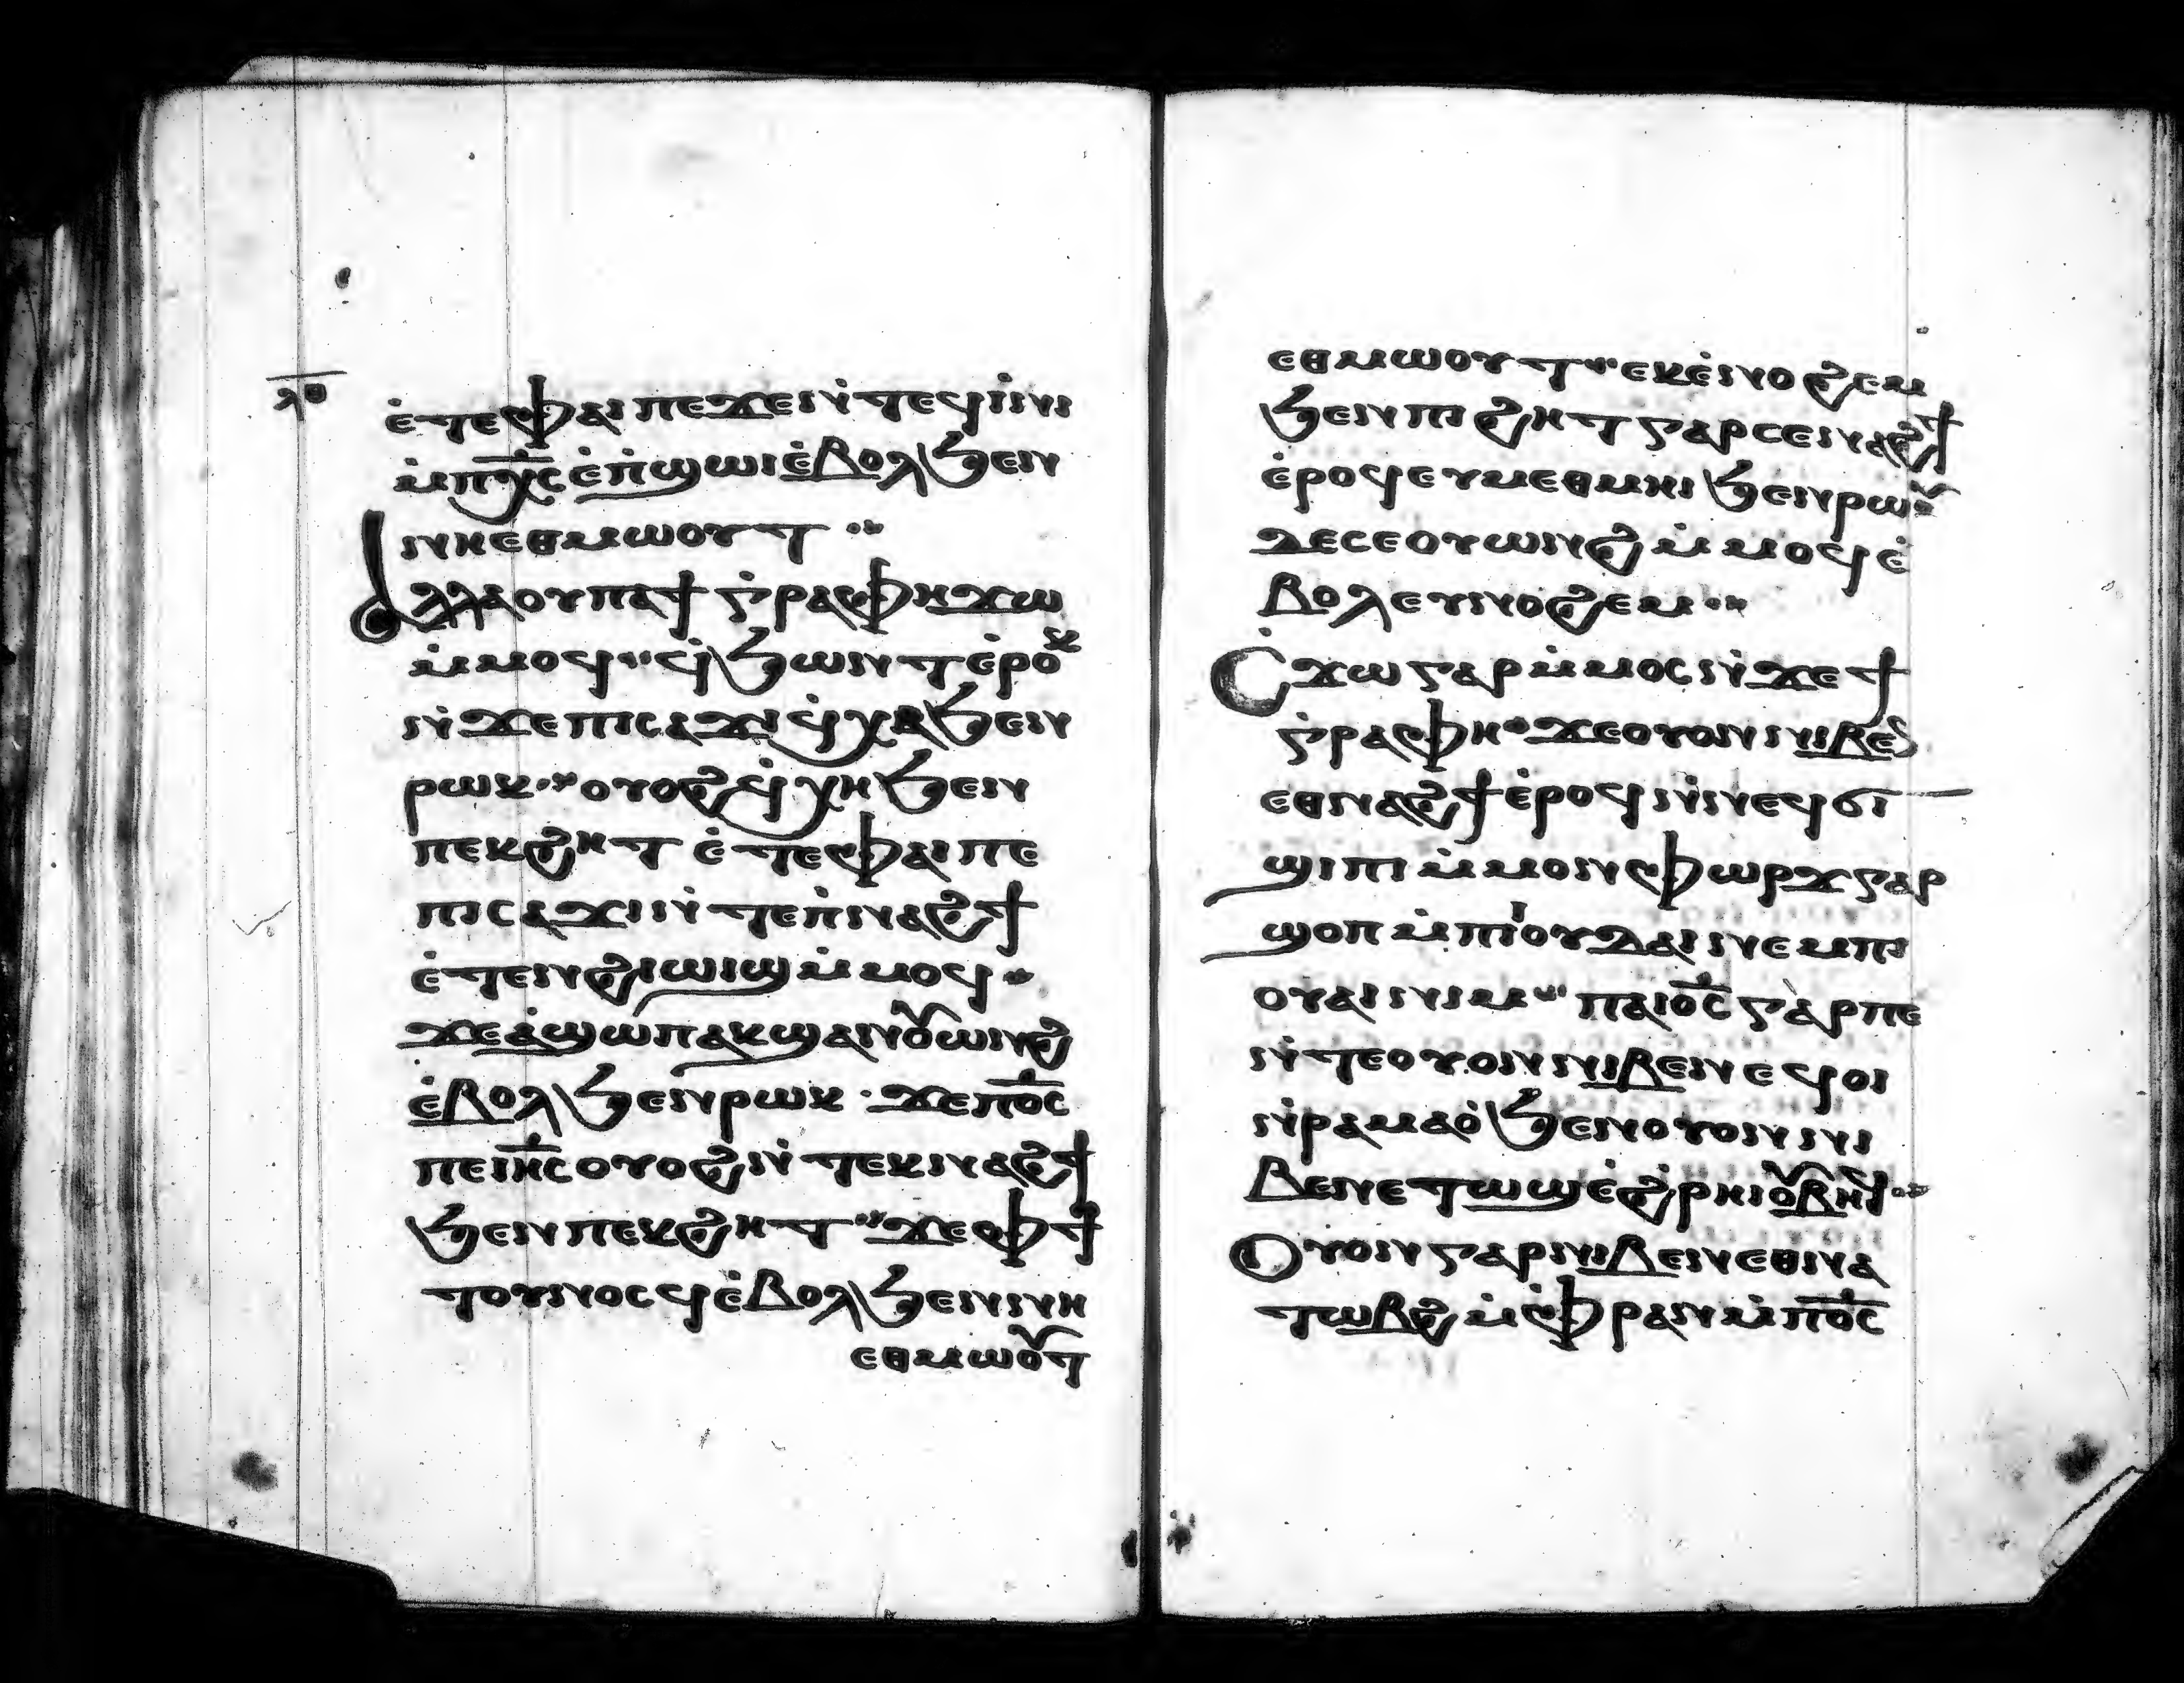 ⲗⲑ
ⲉ̀ⲧⲉⲫⲁⲓⲡⲉϫⲉⲛ̀ⲧⲉϥⲓ̀ⲛⲓ
ⲙ̀ⲡⲭ̅ⲥ̅ⲉ̀ⲡ̀ϣⲱⲓⲉ̀ⲃⲟⲗϧⲉⲛ
ⲛⲏⲉⲑⲙⲱⲟⲩⲧ ⁘
ⲁⲗⲗⲁⲟⲩⲡⲁϯⲅ̀ⲣⲁⲫⲏϫⲱ
ⲙ̀ⲙⲟϥ⁘ϥ̀ϧⲱⲛⲧⲉ̀ⲣⲟⲕ
ⲛ̀ϫⲉⲡⲓⲥⲁϫⲓϥ̀ⲭⲁϧⲉⲛ
ⲣⲱⲕ⁘ⲟⲩⲟϩϥ̀ⲭⲏϧⲉⲛ
ⲡⲉⲕϩⲏⲧ ⲉ̀ⲧⲉⲫⲁⲓⲡⲉ
ⲡⲓⲥⲁϫⲓⲛ̀ⲧⲉⲡ̀ⲛⲁϩϯ
ⲉ̀ⲧⲉⲛϩⲓⲱⲓϣⲙ̀ⲙⲟϥ⁘
ϫⲉⲁ̀ϣⲱⲡⲁⲕϣⲁⲛⲟⲩⲱⲛϩ
ⲉ̀ⲃⲟⲗϧⲉⲛⲣⲱⲕ·ϫⲉⲡⲟ̅ⲥ̅
ⲡⲉⲓⲏ̅ⲥ̅ⲟⲩⲟϩⲛ̀ⲧⲉⲕⲛⲁϩϯ
ϧⲉⲛⲡⲉⲕϩⲏⲧ⁘ϫⲉⲫϯ
ⲧⲟⲩⲛⲟⲥϥⲉ̀ⲃⲟⲗϧⲉⲛⲛⲏ
ⲉⲑⲙⲱⲟⲩⲧ
ⲉⲑⲙⲱⲟⲩⲧ⁘ⲉⲕⲉ̀ⲛⲟϩⲉⲙ
ϧⲉⲛⲡⲓϩⲏⲧⲅⲁⲣⲥⲉⲛⲁϩϯ
ⲉ̀ⲣⲟϥⲉⲩⲙⲉⲑⲙⲏⲓϧⲉⲛⲣⲱⲟⲩ
ⲇⲉⲥⲉⲟⲩⲱⲛϩⲙ̀ⲙⲟϥⲉ̀
ⲃⲟⲗⲉⲩⲛⲟϩⲉⲙ⁘
ⲥ̀ϫⲱⲅⲁⲣⲙ̀ⲙⲟⲥⲛ̀ϫⲉϯ
ⲅ̀ⲣⲁⲫⲏ⁘ϫⲉⲟⲩⲟⲛⲛⲓⲃⲉⲛ
ⲉⲑⲛⲁϩϯⲉ̀ⲣⲟϥⲛ̀ⲛⲉϥϭⲓ
ϣⲓⲡⲓⲙ̀ⲙⲟⲛⲫⲱⲣϫⲅⲁⲣ
ϣⲟⲡⲙ̀ⲡⲓⲓⲟⲩⲇⲁⲓⲛⲉⲙⲡⲓ
ⲟⲩⲁⲓⲛⲓⲙ⁘ⲡⲁⲓⲟ̅ⲥ̅ⲅⲁⲣⲡⲉ
ⲛ̀ⲧⲉⲟⲩⲟⲛⲛⲓⲃⲉⲛⲉϥⲟⲓ
ⲛ̀ⲣⲁⲙⲁⲟ̀ϧⲉⲛⲟⲩⲟⲛⲛⲓ
ⲃⲉⲛⲉⲧⲱϣⲉ̀ϩ̀ⲣⲏⲓⲟⲩⲃⲏϥ⁘
ⲟⲩⲟⲛⲅⲁⲣⲛⲓⲃⲉⲛⲉⲑⲛⲁ
ⲧⲱⲃϩⲙ̀ⲫ̀ⲣⲁⲛⲙ̀ⲡⲟ̅ⲥ̅